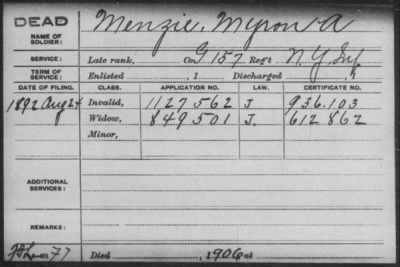 DEAD
NAME OF SOLDIER: Menzie, Myron A
SERVICE: Late rank, Co. G 157 Reg't N. Y. Inf
TERM OF SERVICE: Enlisted , 1 Discharged , 1
DATE OF FILING. CLASS. APPLICATION NO. LAW. CERTIFICATE NO.
1892 Aug 24 Invalid, 1127 562 J. 936.103
Widow, 849 501 J. 612 862
Minor,
ADDITIONAL SERVICES:
REMARKS:
77 Died , 1906 at